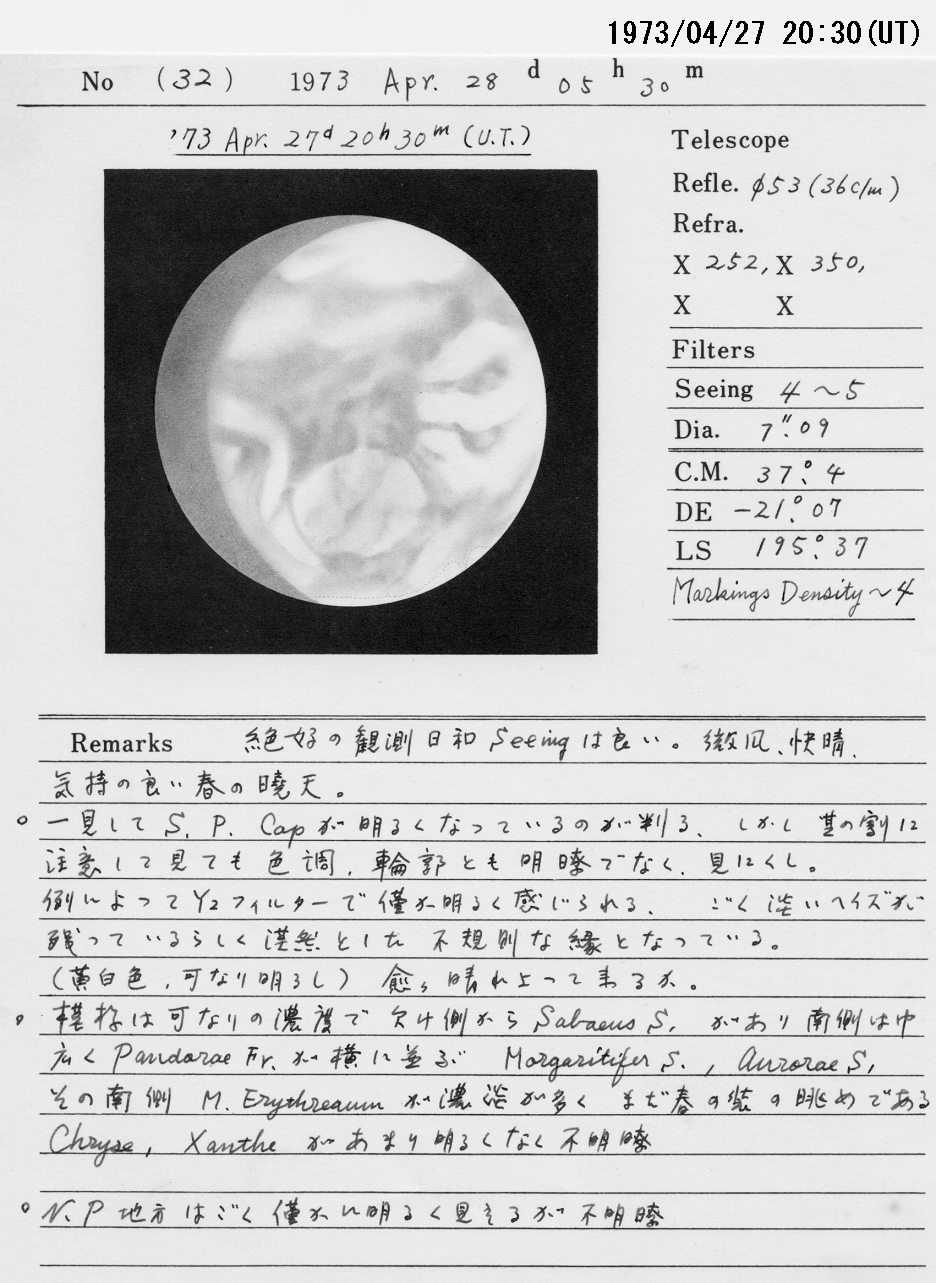 1973/04/27 20:30(UT)
No (32) 1973 Apr. 28 d 05 h 30 m
'73 Apr. 27d 20h 30m (U.T.)
Telescope
Refle. φ53 (36c/m)
Refra.
X 252, X 350,
X X
Filters
Seeing 4~5
Dia. 7".09
C.M. 37°.4
DE -21°.07
LS 195°.37
Markings Density~4
Remarks 絶好の観測日和 Seeingは良い。微風、快晴、
気持の良い春の暁天。
○ 一見して S. P. Capが明るくなっているのが判る、しかし其の割に
注意して見ても色調、輪郭とも明瞭でなく、見にくし。
例によってY2フィルターで僅か明るく感じられる、ごく淡いヘイズが
残っているらしく漠然とした不規則な縁となっている。
(黄白色、可なり明るし) 愈々晴れ上って来るか。
○ 模様は可なりの濃度で欠け側から Sabaeus S, があり南側は巾
広く Pandorae Fr. が横に並ぶ Margaritifer S., Aurorae S,
その南側 M. Erythreaum が濃淡が多く まだ春の装の眺めである
Chryse, Xanthe があまり明るくなく不明瞭
○ N. P 地方はごく僅かに明るく見えるが不明瞭